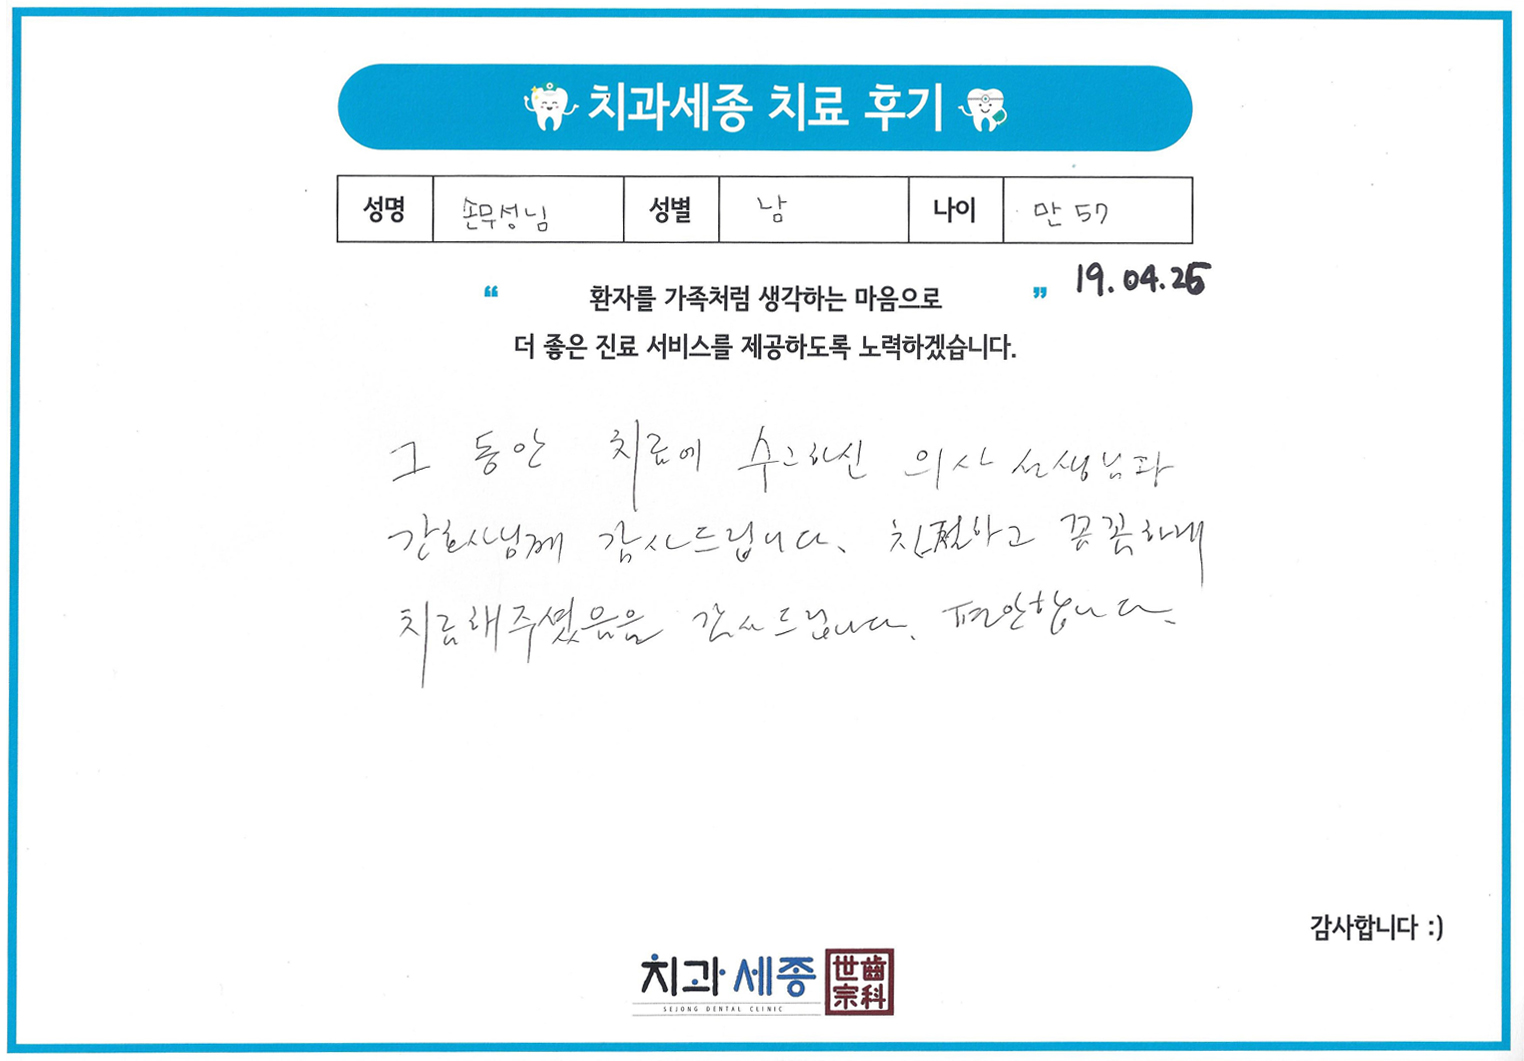 치과세종 치료 후기
성명 손무성님 성별 남 나이 만 57
19.04.25
“ 환자를 가족처럼 생각하는 마음으로 ”
더 좋은 진료 서비스를 제공하도록 노력하겠습니다.
그 동안 치료에 수고하신 의사 선생님과
간호사님께 감사드립니다. 친절하고 꼼꼼하게
치료해주셨음을 감사드립니다. 편안합니다.
감사합니다 :)
치과세종 世齒宗科
SEJONG DENTAL CLINIC